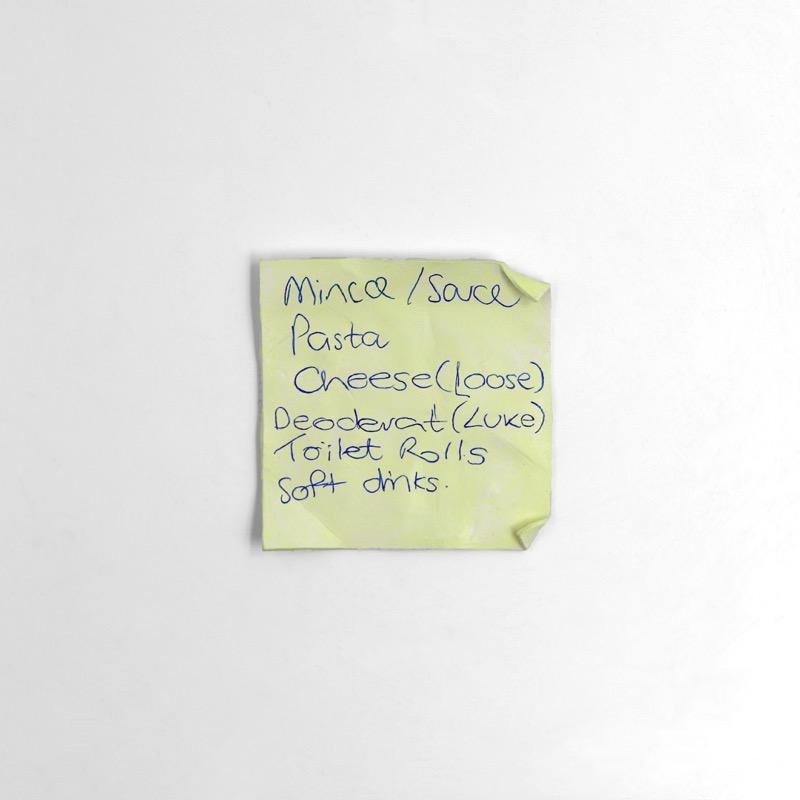 Mince / Sauce
Pasta
Cheese (Loose)
Deoderat (Luke)
Toilet Rolls
Soft drinks.